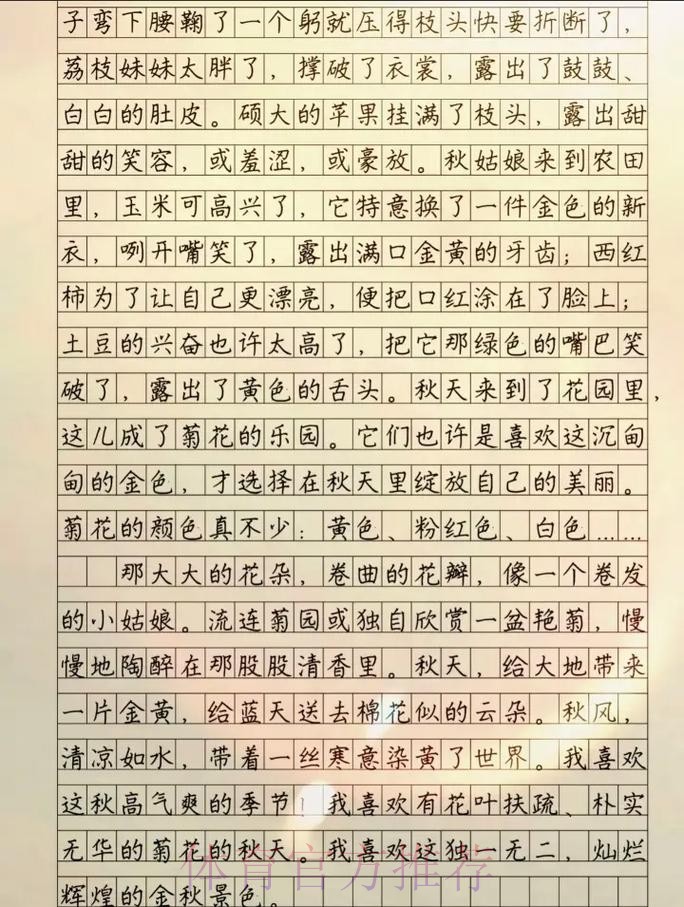 子弯下腰鞠了一个躬就压得枝头快要折断了，
荔枝妹妹太胖了，撑破了衣裳，露出了鼓鼓、
白白的肚皮。硕大的苹果挂满了枝头，露出甜
甜的笑容，或羞涩，或豪放。秋姑娘来到农田
里，玉米可高兴了，它特意换了一件金色的新
衣，咧开嘴笑了，露出满口金黄的牙齿；西红
柿为了让自己更漂亮，便把口红涂在了脸上；
土豆的兴奋也许太高了，把它那绿色的嘴巴笑
破了，露出了黄色的舌头。秋天来到了花园里，
这儿成了菊花的乐园。它们也许是喜欢这沉甸
甸的金色，才选择在秋天里绽放自己的美丽。
菊花的颜色真不少：黄色、粉红色、白色……
那大大的花朵，卷曲的花瓣，像一个卷发
的小姑娘。流连菊园或独自欣赏一盆艳菊，慢
慢地陶醉在那股股清香里。秋天，给大地带来
一片金黄，给蓝天送去棉花似的云朵。秋风，
清凉如水，带着一丝寒意染黄了世界。我喜欢
这秋高气爽的季节！我喜欢有花叶扶疏、朴实
无华的菊花的秋天。我喜欢这独一无二，灿烂
辉煌的金秋景色。
体育官方推荐